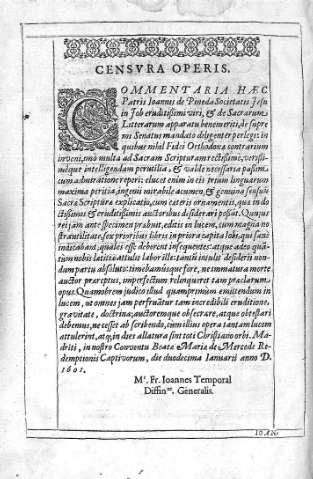 CENSVRA OPERIS.
COMMENTARIA HÆC
Patris Ioannis de Pineda Societatis Iesu
in Iob eruditissimi viri, & de Sacrarum
Litterarum apparatu benemeriti, de supre
mi Senatus mandato diligenter perlegi: in
quibus nihil Fidei Orthodoxæ contrarium
inveni, imò multa ad Sacram Scripturam rectissimè, verissi-
mèque intelligendam perutilia, & valdè necessaria passim,
cum admiratione reperi: elucet enim in eis prium linguarum
maxima peritia, ingenij mirabile acumen, & genuina sensuũ
Sacræ Scripturæ explicatio, cum cæteris ornamentis, quæ in do
ctissimis & eruditissimis auctoribus desiderari possũt. Quorum
rei jam ante specimen præbuit, editis in lucem, cum magna no
stra utilitate, sex prioribus libris in priora capita Iob, qui sanè
indicabant, quales esse deberent insequentes: atque adeo quã-
tum nobis lætitiæ attulit labor ille: tanti insuls desiderij non-
dum partu absoluto: timebamusque fore, ne immatura morte
auctor præreptus, imperfectum relinqueret tam præclarum
opus. Quamobrem judico illud quamprimum emittendum in
lucem, ut omnes jam perfruãtur tam incredibili eruditione,
gravitate, doctrina; auctoremque obsecrare, atque obtestari
debemus, ne cesset ab scribendo, cum illius opera tantam lucem
attulerint, atq; in dies allatura sint toti Christiano orbi. Ma-
driti, in nostro Conventu Beatæ Mariæ de Mercede Re-
demptionis Captivorum, die duodecima Ianuarij anno D.
1601.
M. Fr. Ioannes Temporal
Diffinor. Generalis.
IOAN